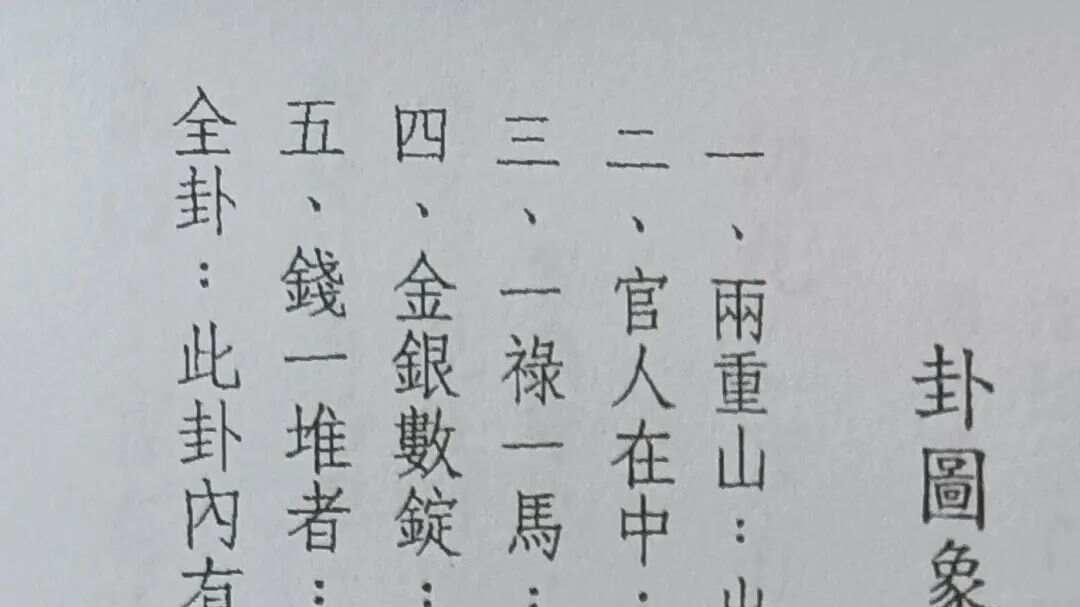 卦圖象
一、兩重山：
二、官人在中：
三、一祿一馬：
四、金銀數錠：
五、錢一堆者：
全卦：此卦內有